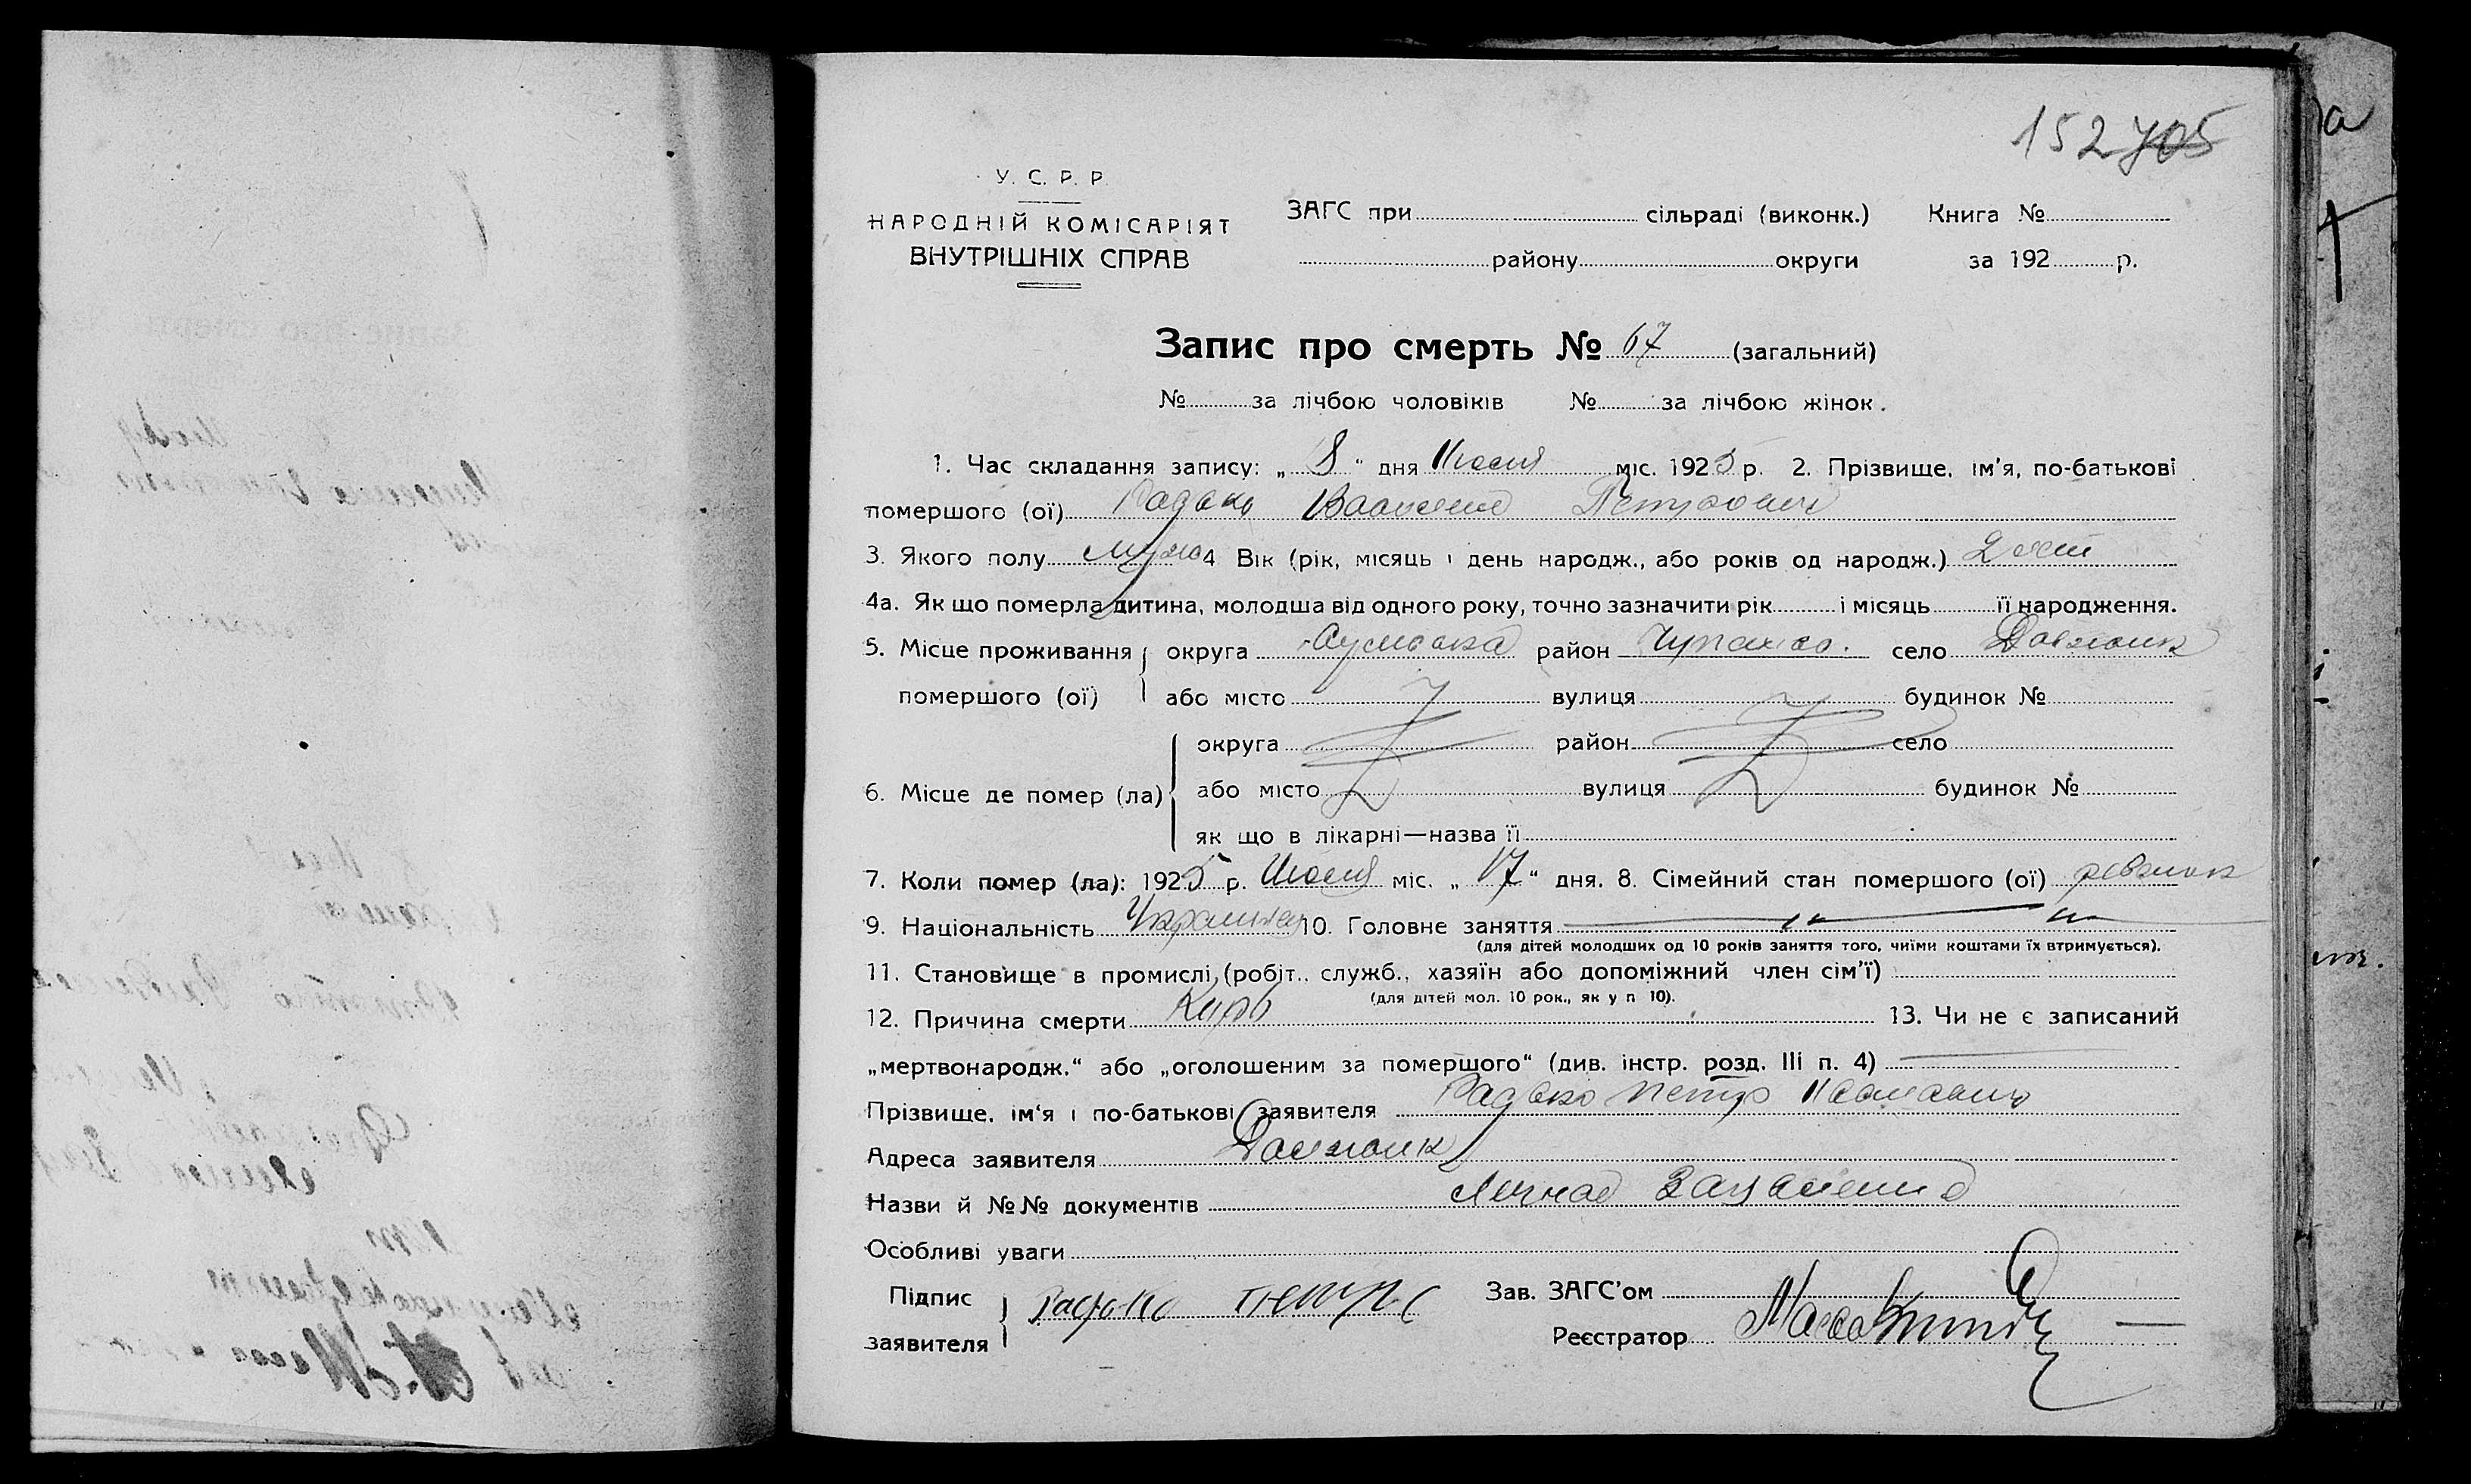 152 705
У. С. Р. Р.
НАРОДНІЙ КОМІСАРІЯТ
ВНУТРІШНІХ СПРАВ
ЗАГС при сільраді (виконк.) Книга №
району округи за 192 р.
Запис про смерть № 67 (загальний)
№ за лічбою чоловіків № за лічбою жінок.
1. Час складання запису: „ 8 “ дня Июля міс. 1925 р. 2. Прізвище, ім'я, по-батькові
помершого (ої) Радько Василий Петрович
3. Якого полу муж 4 Вік (рік, місяць і день народж., або років од народж.) 2 лет
4а. Як що померла дитина, молодша від одного року, точно зазначити рік і місяць її народження.
5. Місце проживання округа Сумська район село Должик
помершого (ої) або місто вулиця будинок №
округа район село
6. Місце де помер (ла) або місто вулиця будинок №
як що в лікарні—назва її
7. Коли помер (ла): 1925 р. Июля міс. „ 17 “ дня. 8. Сімейний стан помершого (ої)
9. Національність 10. Головне заняття
(для дітей молодших од 10 років заняття того, чиїми коштами їх втримується).
11. Становище в промислі, (робіт., служб., хазяїн або допоміжний член сім'ї)
(для дітей мол. 10 рок., як у п 10).
12. Причина смерти Корь 13. Чи не є записаний
„мертвонародж.“ або „оголошеним за помершого“ (див. інстр. розд. III п. 4)
Прізвище, ім'я і по-батькові заявителя Радько Петр Иванович
Адреса заявителя Должик
Назви й №№ документів Личное Заявление
Особливі уваги
Підпис заявителя Радько Зав. ЗАГС'ом
Реєстратор